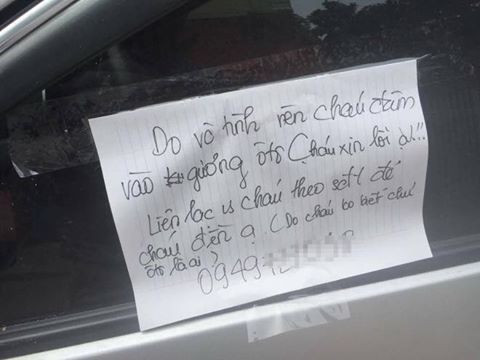 Do vô tình nên cháu đâm
vào gương ôtô Cháu xin lỗi ạ!!!
Liên lạc vs cháu theo số đt để
cháu đền ạ (Do cháu ko biết chủ
ôtô là ai)
0949